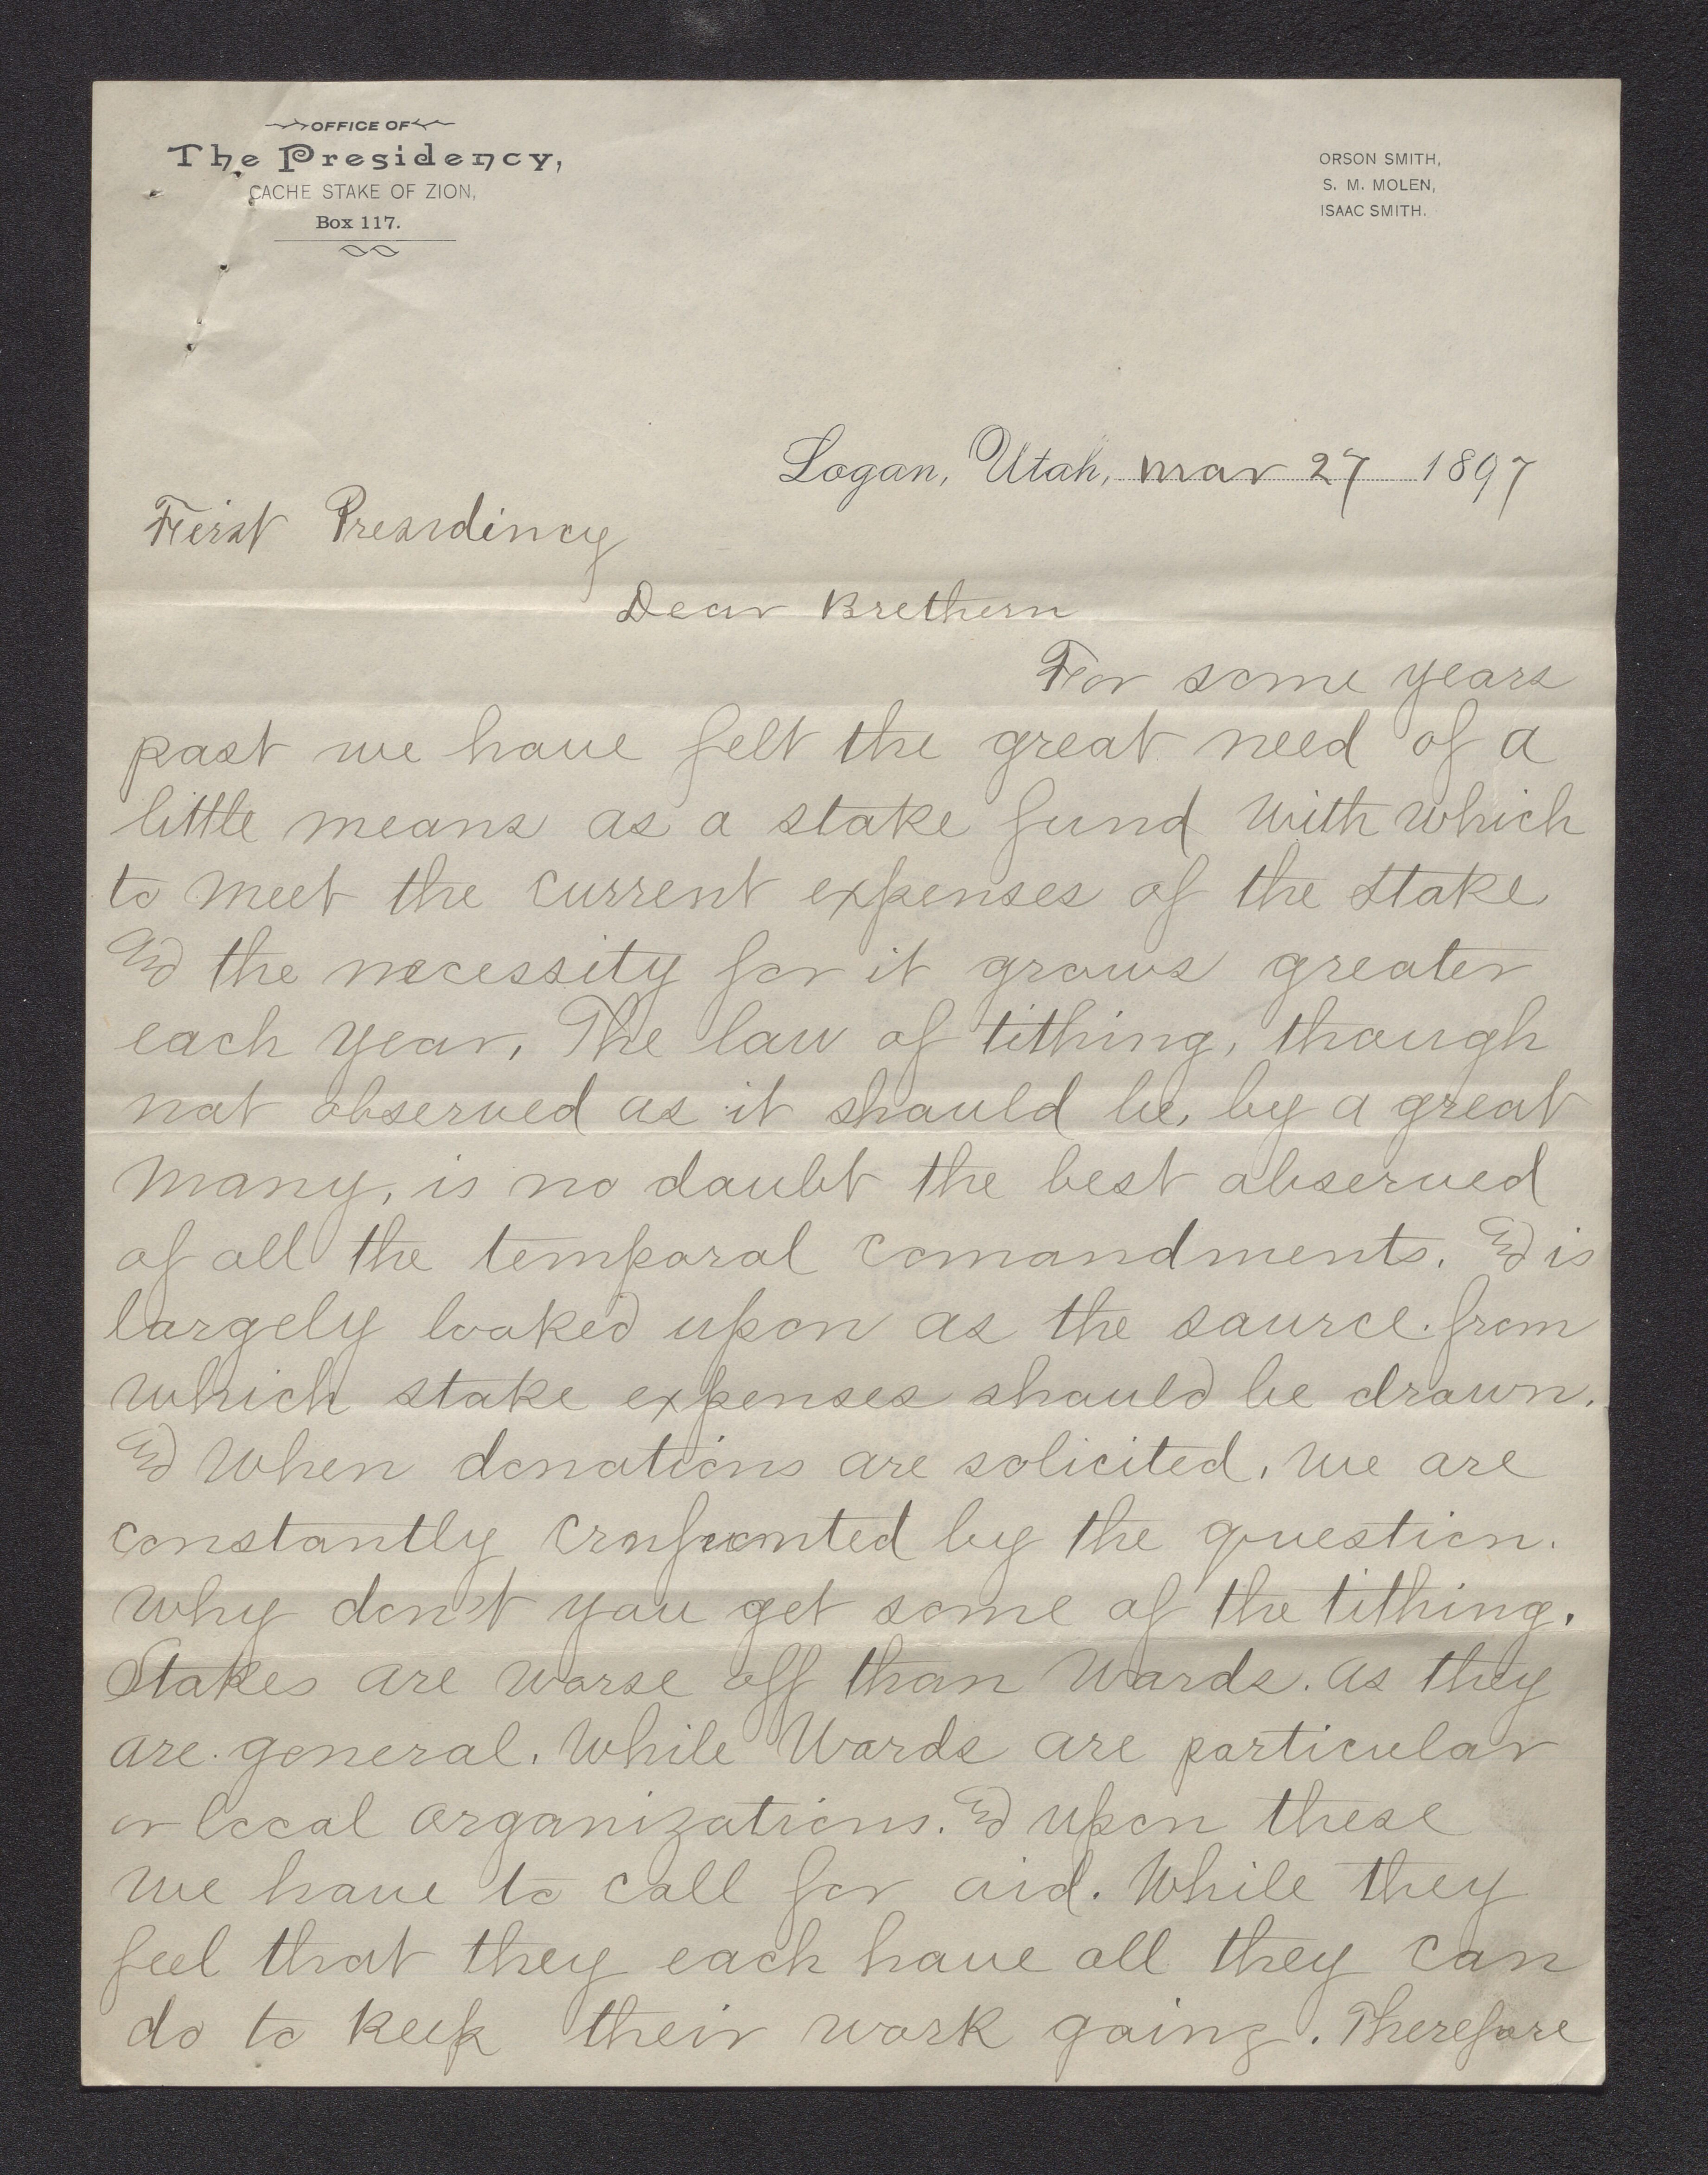 OFFICE OF
The Presidency,
CACHE STAKE OF ZION,
Box 117.
ORSON SMITH,
S. M. MOLEN,
ISAAC SMITH.
Logan, Utah, Mar 27 1897
First Presidincy
Dear Brethern
For some years
past we have felt the great need of a
little means as a stake fund with which
to meet the current expenses of the stake
and the necessity for it grows greater
each year, The law of tithing, though
not observed as it should be, by a great
many, is no doubt the best observed
of all the temporal comandments. and is
largely looked upon as the source from
which stake expenses should be drawn.
and when donations are solicited, we are
constantly confronted by the question.
why don't you get some of the tithing.
Stakes are worse off than Wards. as they
are general. While Wards are particular
or local organizations. and upon these
we have to call for aid. While they
feel that they each have all they can
do to keep their work going. Therefore